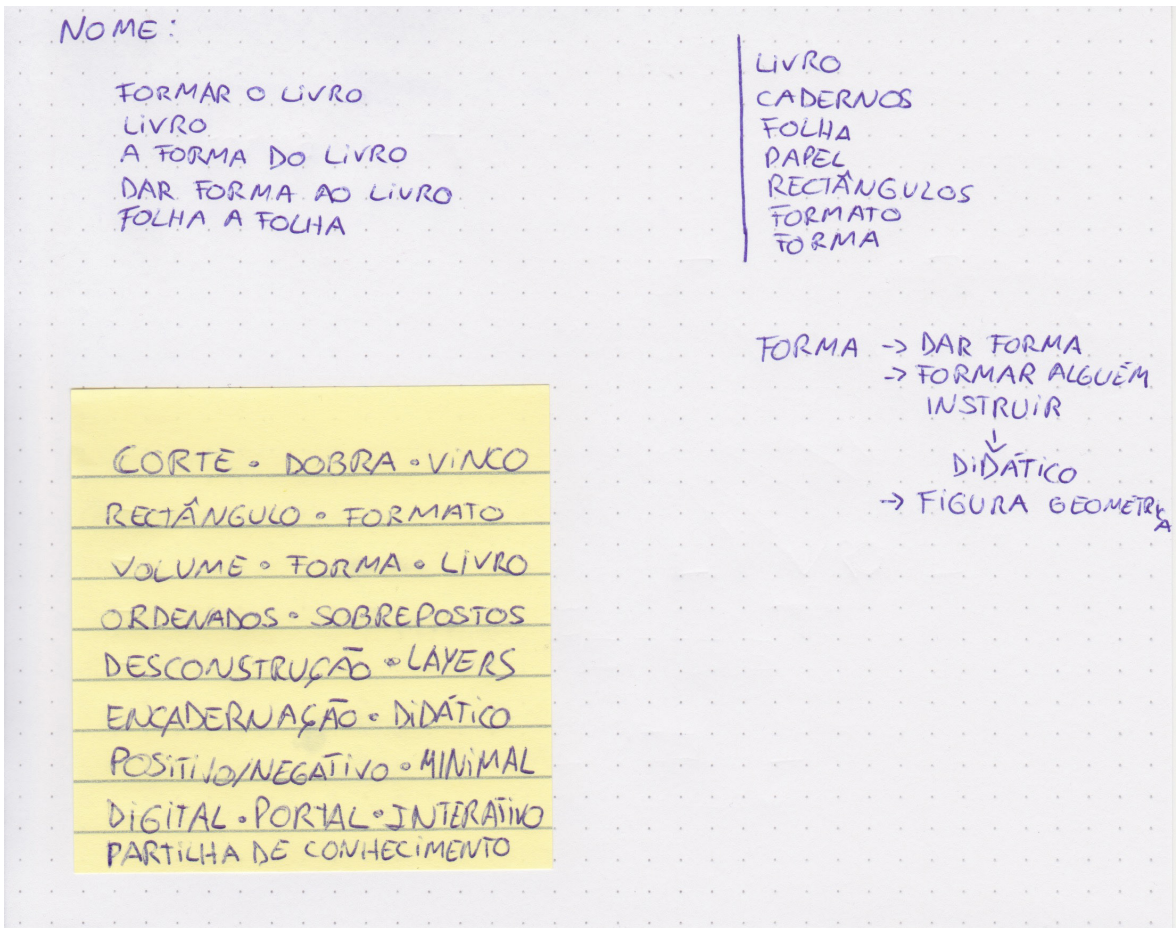 NOME:
FORMAR O LIVRO
LIVRO
A FORMA DO LIVRO
DAR FORMA AO LIVRO
FOLHA A FOLHA
LIVRO
CADERNOS
FOLHA
PAPEL
RECTÂNGULOS
FORMATO
FORMA
FORMA -> DAR FORMA
-> FORMAR ALGUÉM
INSTRUIR
↓
DIDÁTICO
-> FIGURA GEOMETRICA
CORTE • DOBRA • VINCO
RECTÂNGULO • FORMATO
VOLUME • FORMA • LIVRO
ORDENADOS • SOBREPOSTOS
DESCONSTRUÇÃO • LAYERS
ENCADERNAÇÃO • DIDÁTICO
POSITIVO/NEGATIVO • MINIMAL
DIGITAL • PORTAL • INTERATIVO
PARTILHA DE CONHECIMENTO